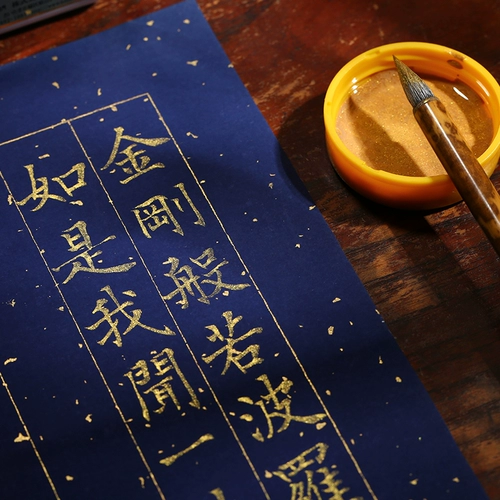 金剛般若波羅
如是我聞一